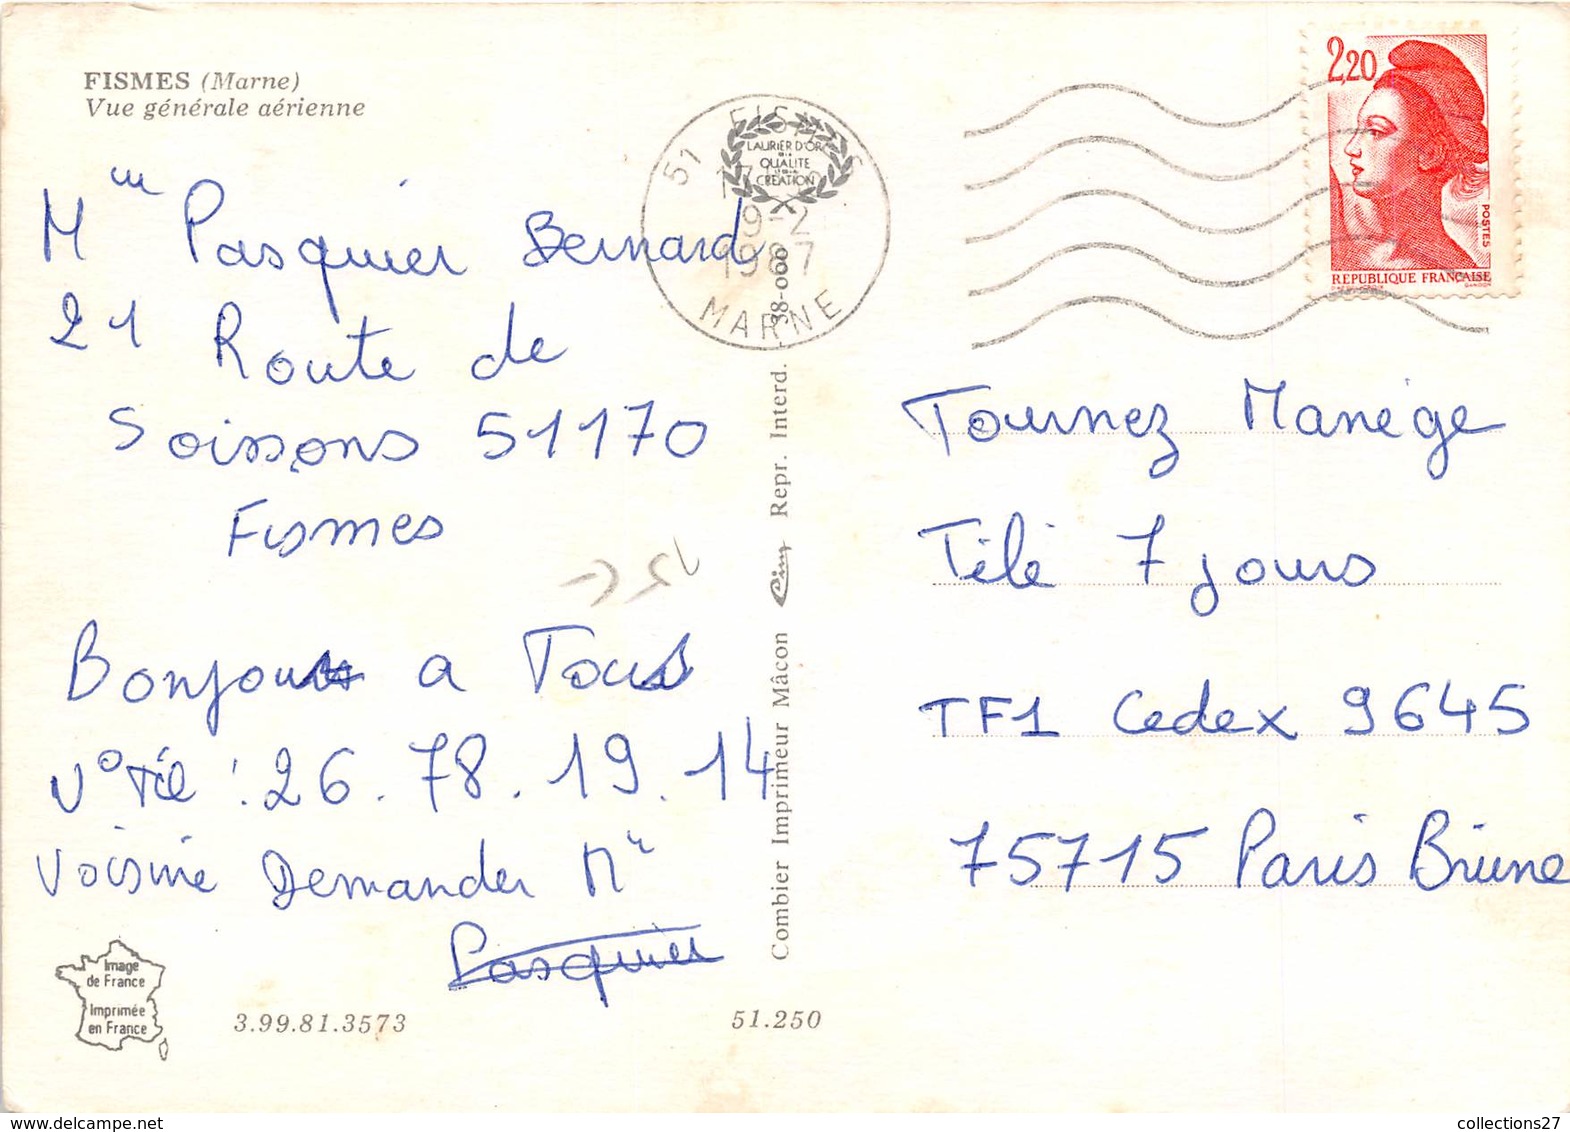 FISMES (Marne)
Vue générale aérienne
Mr Pasquier Bernard
21 Route de
Soissons 51170
Fismes
Bonjour a Tous
N° Tél : 26.78.19.14
Voisine Demander Mr
Pasquier
Image
de France
Imprimée
en France
3.99.81.3573
51.250
51 FISMES
9-2
1987
MARNE
LAURIER D'OR
QUALITE
CREATION
38-000
Combier Imprimeur Mâcon Cim Repr. Interd.
2,20
POSTES
REPUBLIQUE FRANÇAISE
Tournez Manége
Télé 7 jours
TF1 Cedex 9645
75715 Paris Brune
collections27